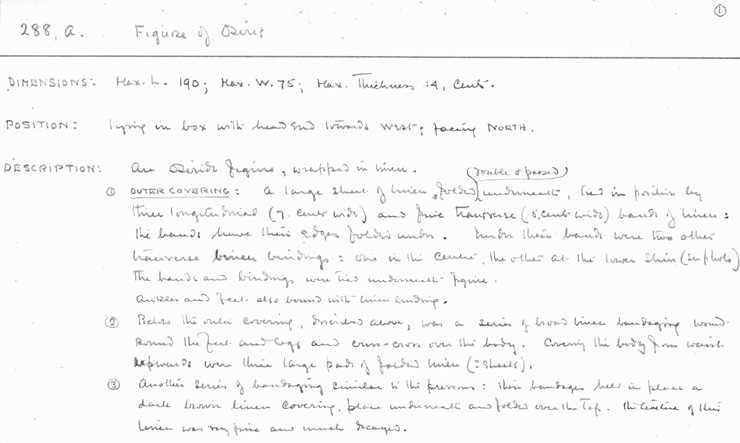 ①
288, a. Figure of Osiris
DIMENSIONS: Max. L. 190; Max. W. 75; Max. Thickness 14, Cents.
POSITION: Lying in box with head end towards West; facing NORTH.
DESCRIPTION: An Osiride figure, wrapped in linen.
(double & passed)
① OUTER COVERING: A large sheet of linen, folded underneath, tied in position by
three longitudinal (7. cents wide) and five transverse (5. cents wide) bands of linen:
the bands have their edges folded under. Under these bands were two other
transverse linen bindings: one in the centre, the other at the lower shin (see photo)
The bands and bindings were tied underneath figure.
Ankles and feet also bound with linen binding.
② Below the outer covering, described above, was a series of broad linen bandaging wound
round the feet and legs and criss-cross over the body. Covering the body from waist
upwards were three large pads of folded linen (: sheets).
③ Another series of bandaging similar to the previous: these bandages held in place a
dark brown linen covering, place underneath and folded over the top. The texture of this
linen was very fine and much decayed.